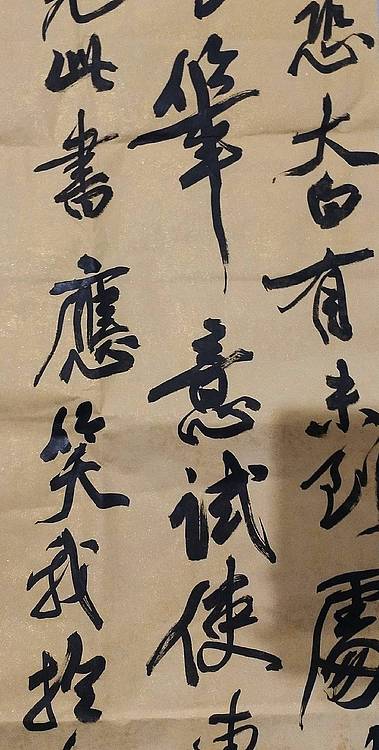 恐太白有未到處
筆意試使東
見此書應笑我於